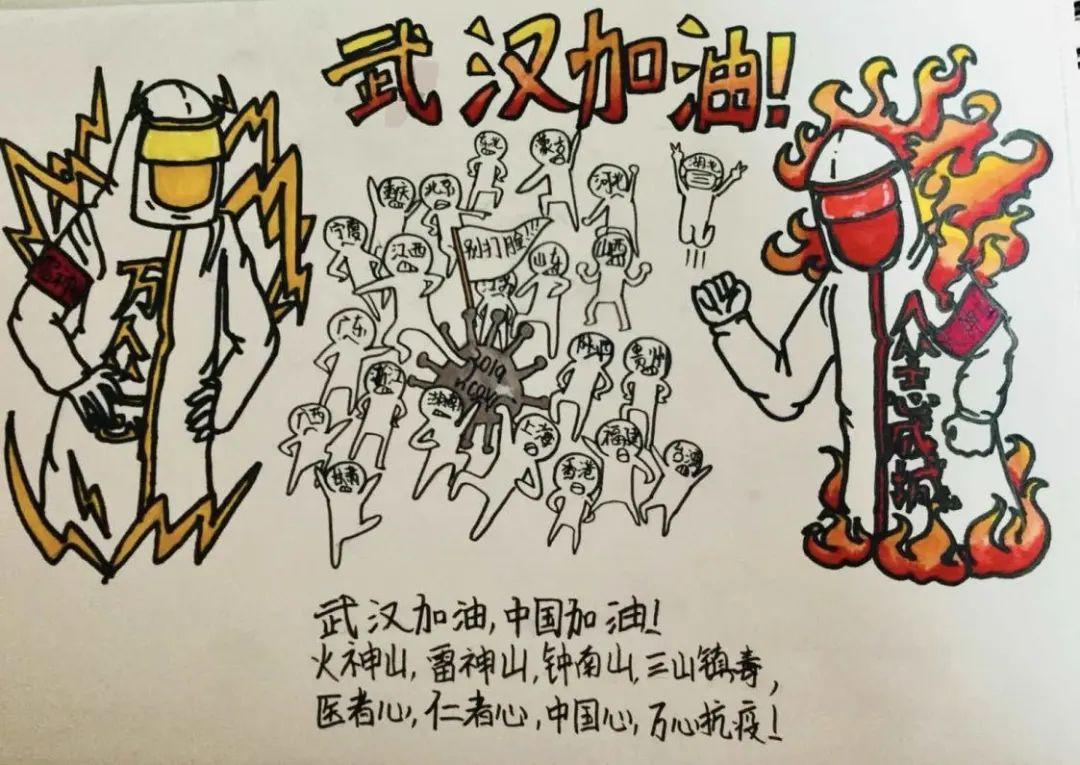 武汉加油!
东北
蒙古
重庆
北京
河北
湖北
宁夏
江西
别打脸!!!
山东
山西
万众一心
广东
2019
nCOV
陕西
贵州
众志成城
浙江
湖南
广西
上海
福建
甘肃
香港
台湾
武汉加油,中国加油!
火神山,雷神山,钟南山,三山镇毒,
医者心,仁者心,中国心,万心抗疫!